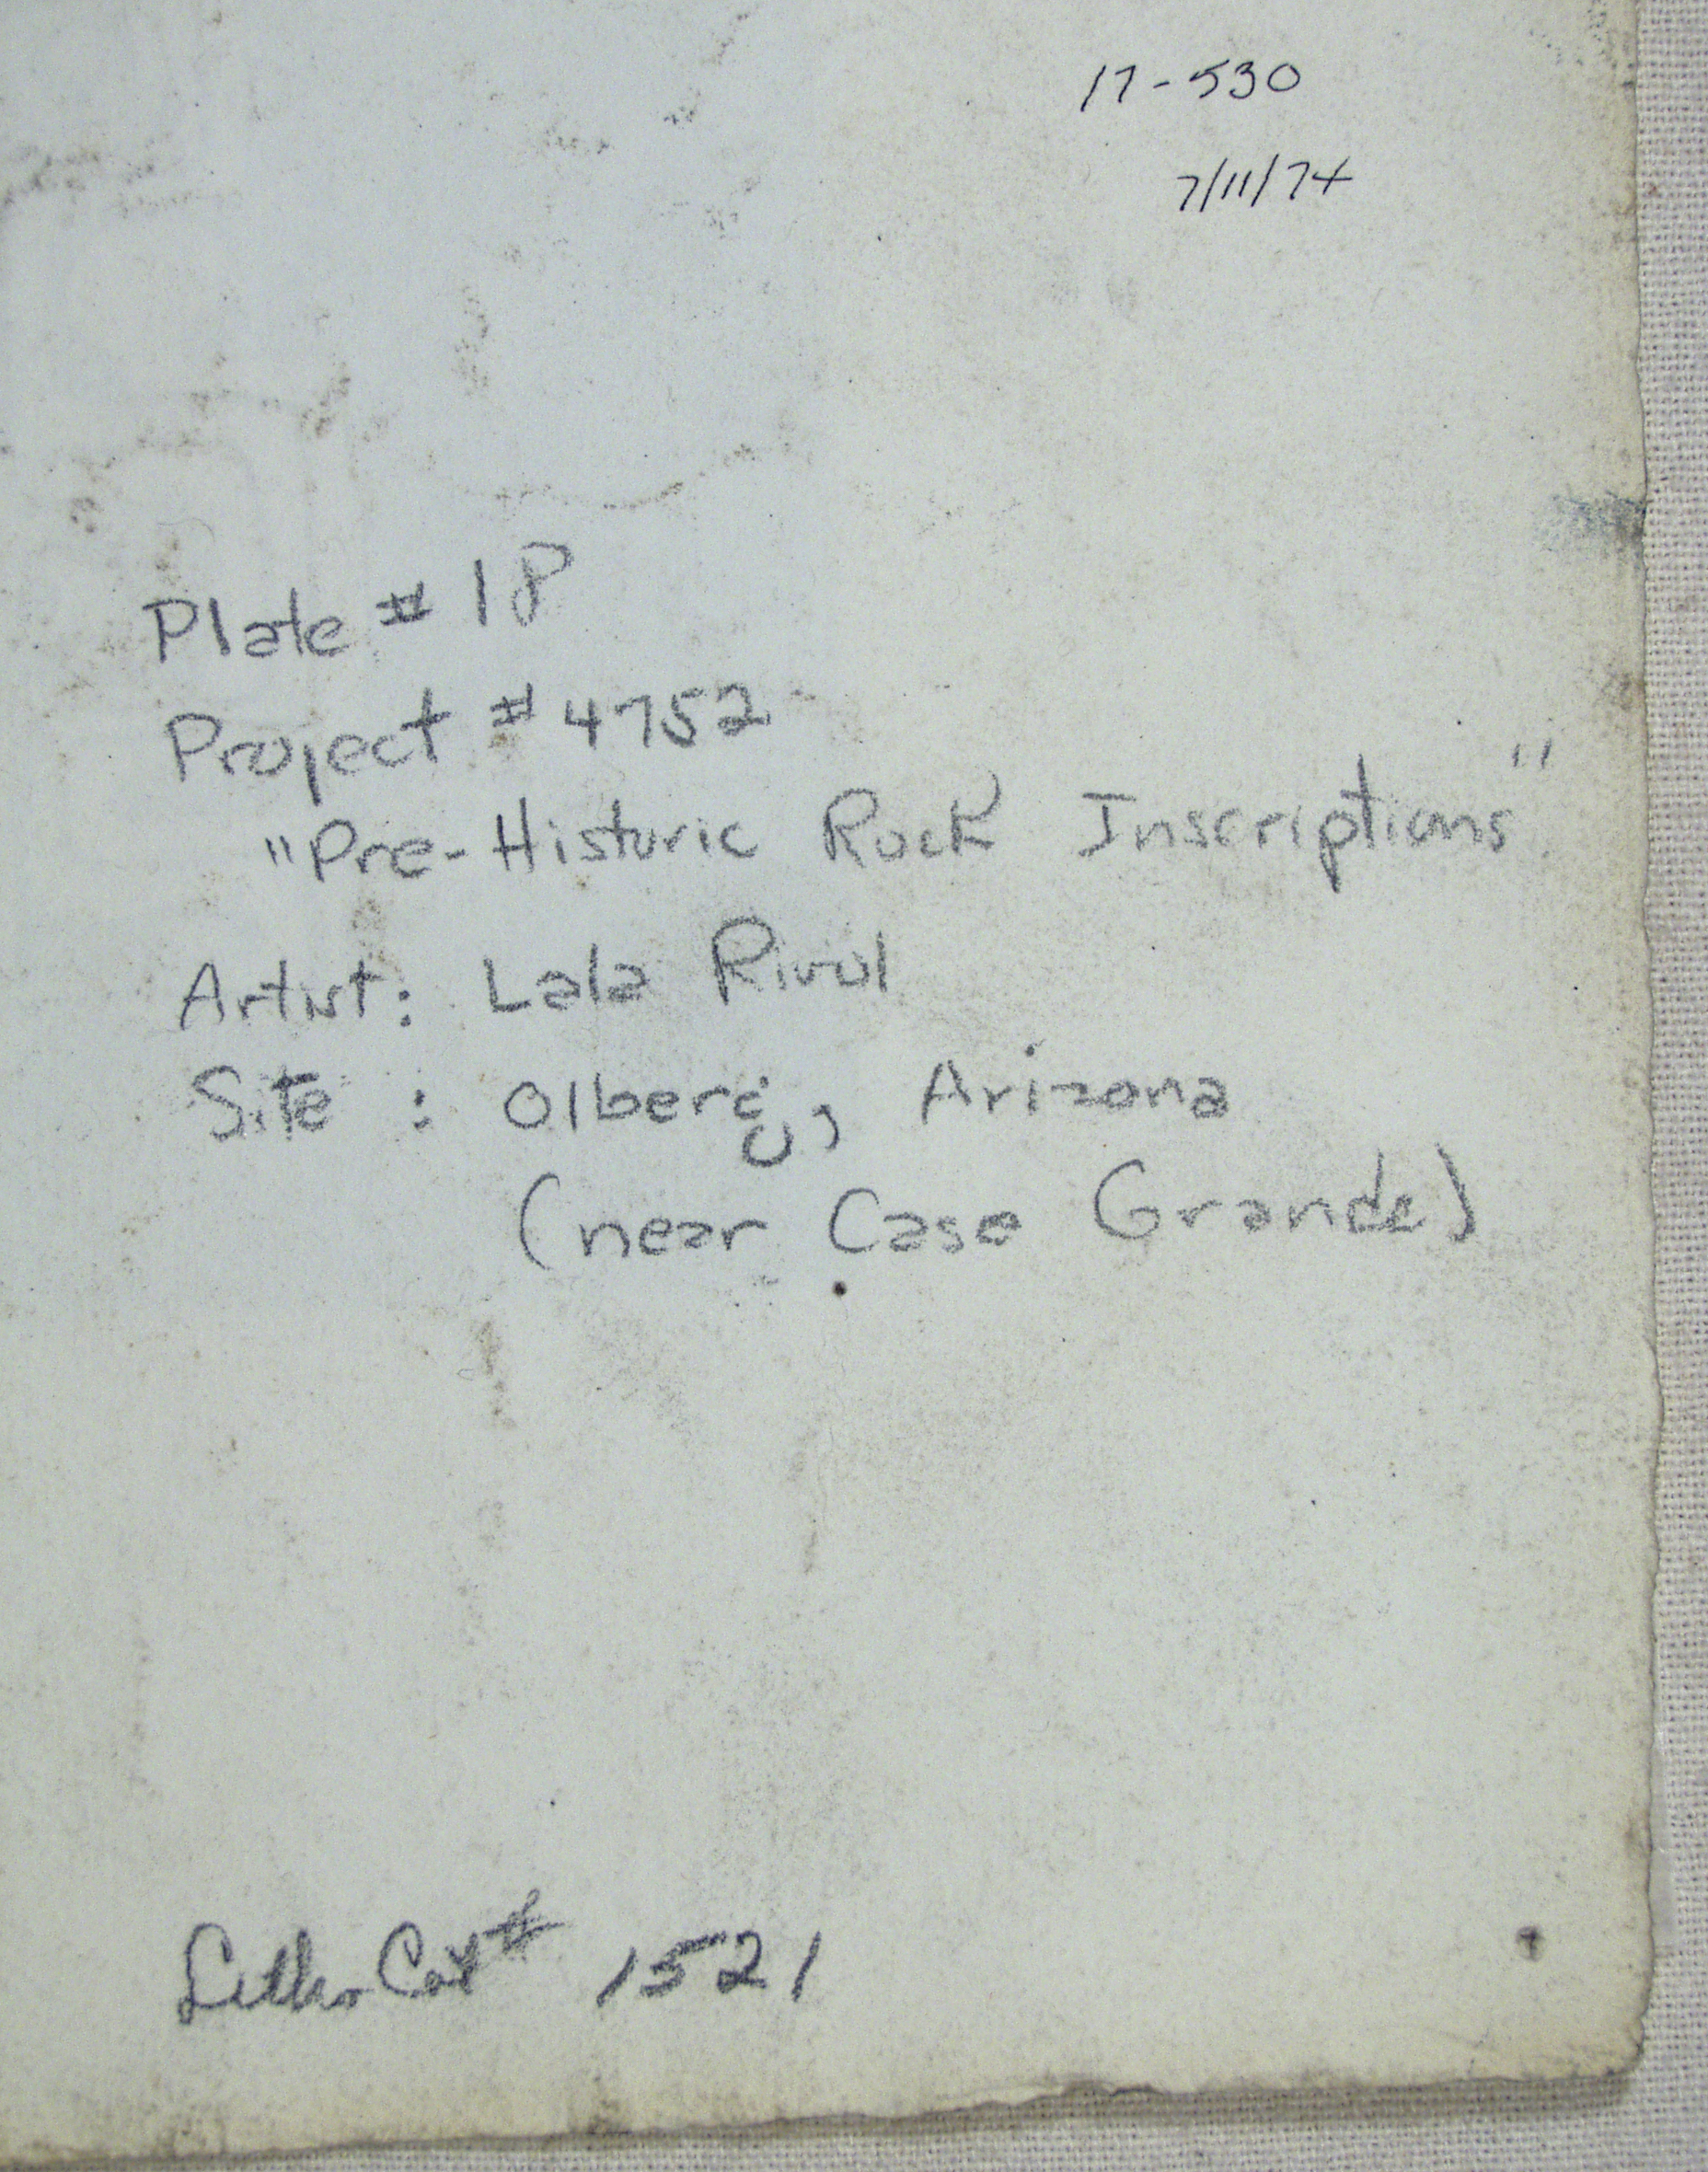 17-530
7/11/74
Plate # 18
Project # 4752
"Pre-Historic Rock Inscriptions"
Artist: Lala Rivol
Site : Olberg, Arizona
(near Casa Grande)
Cat # 1521